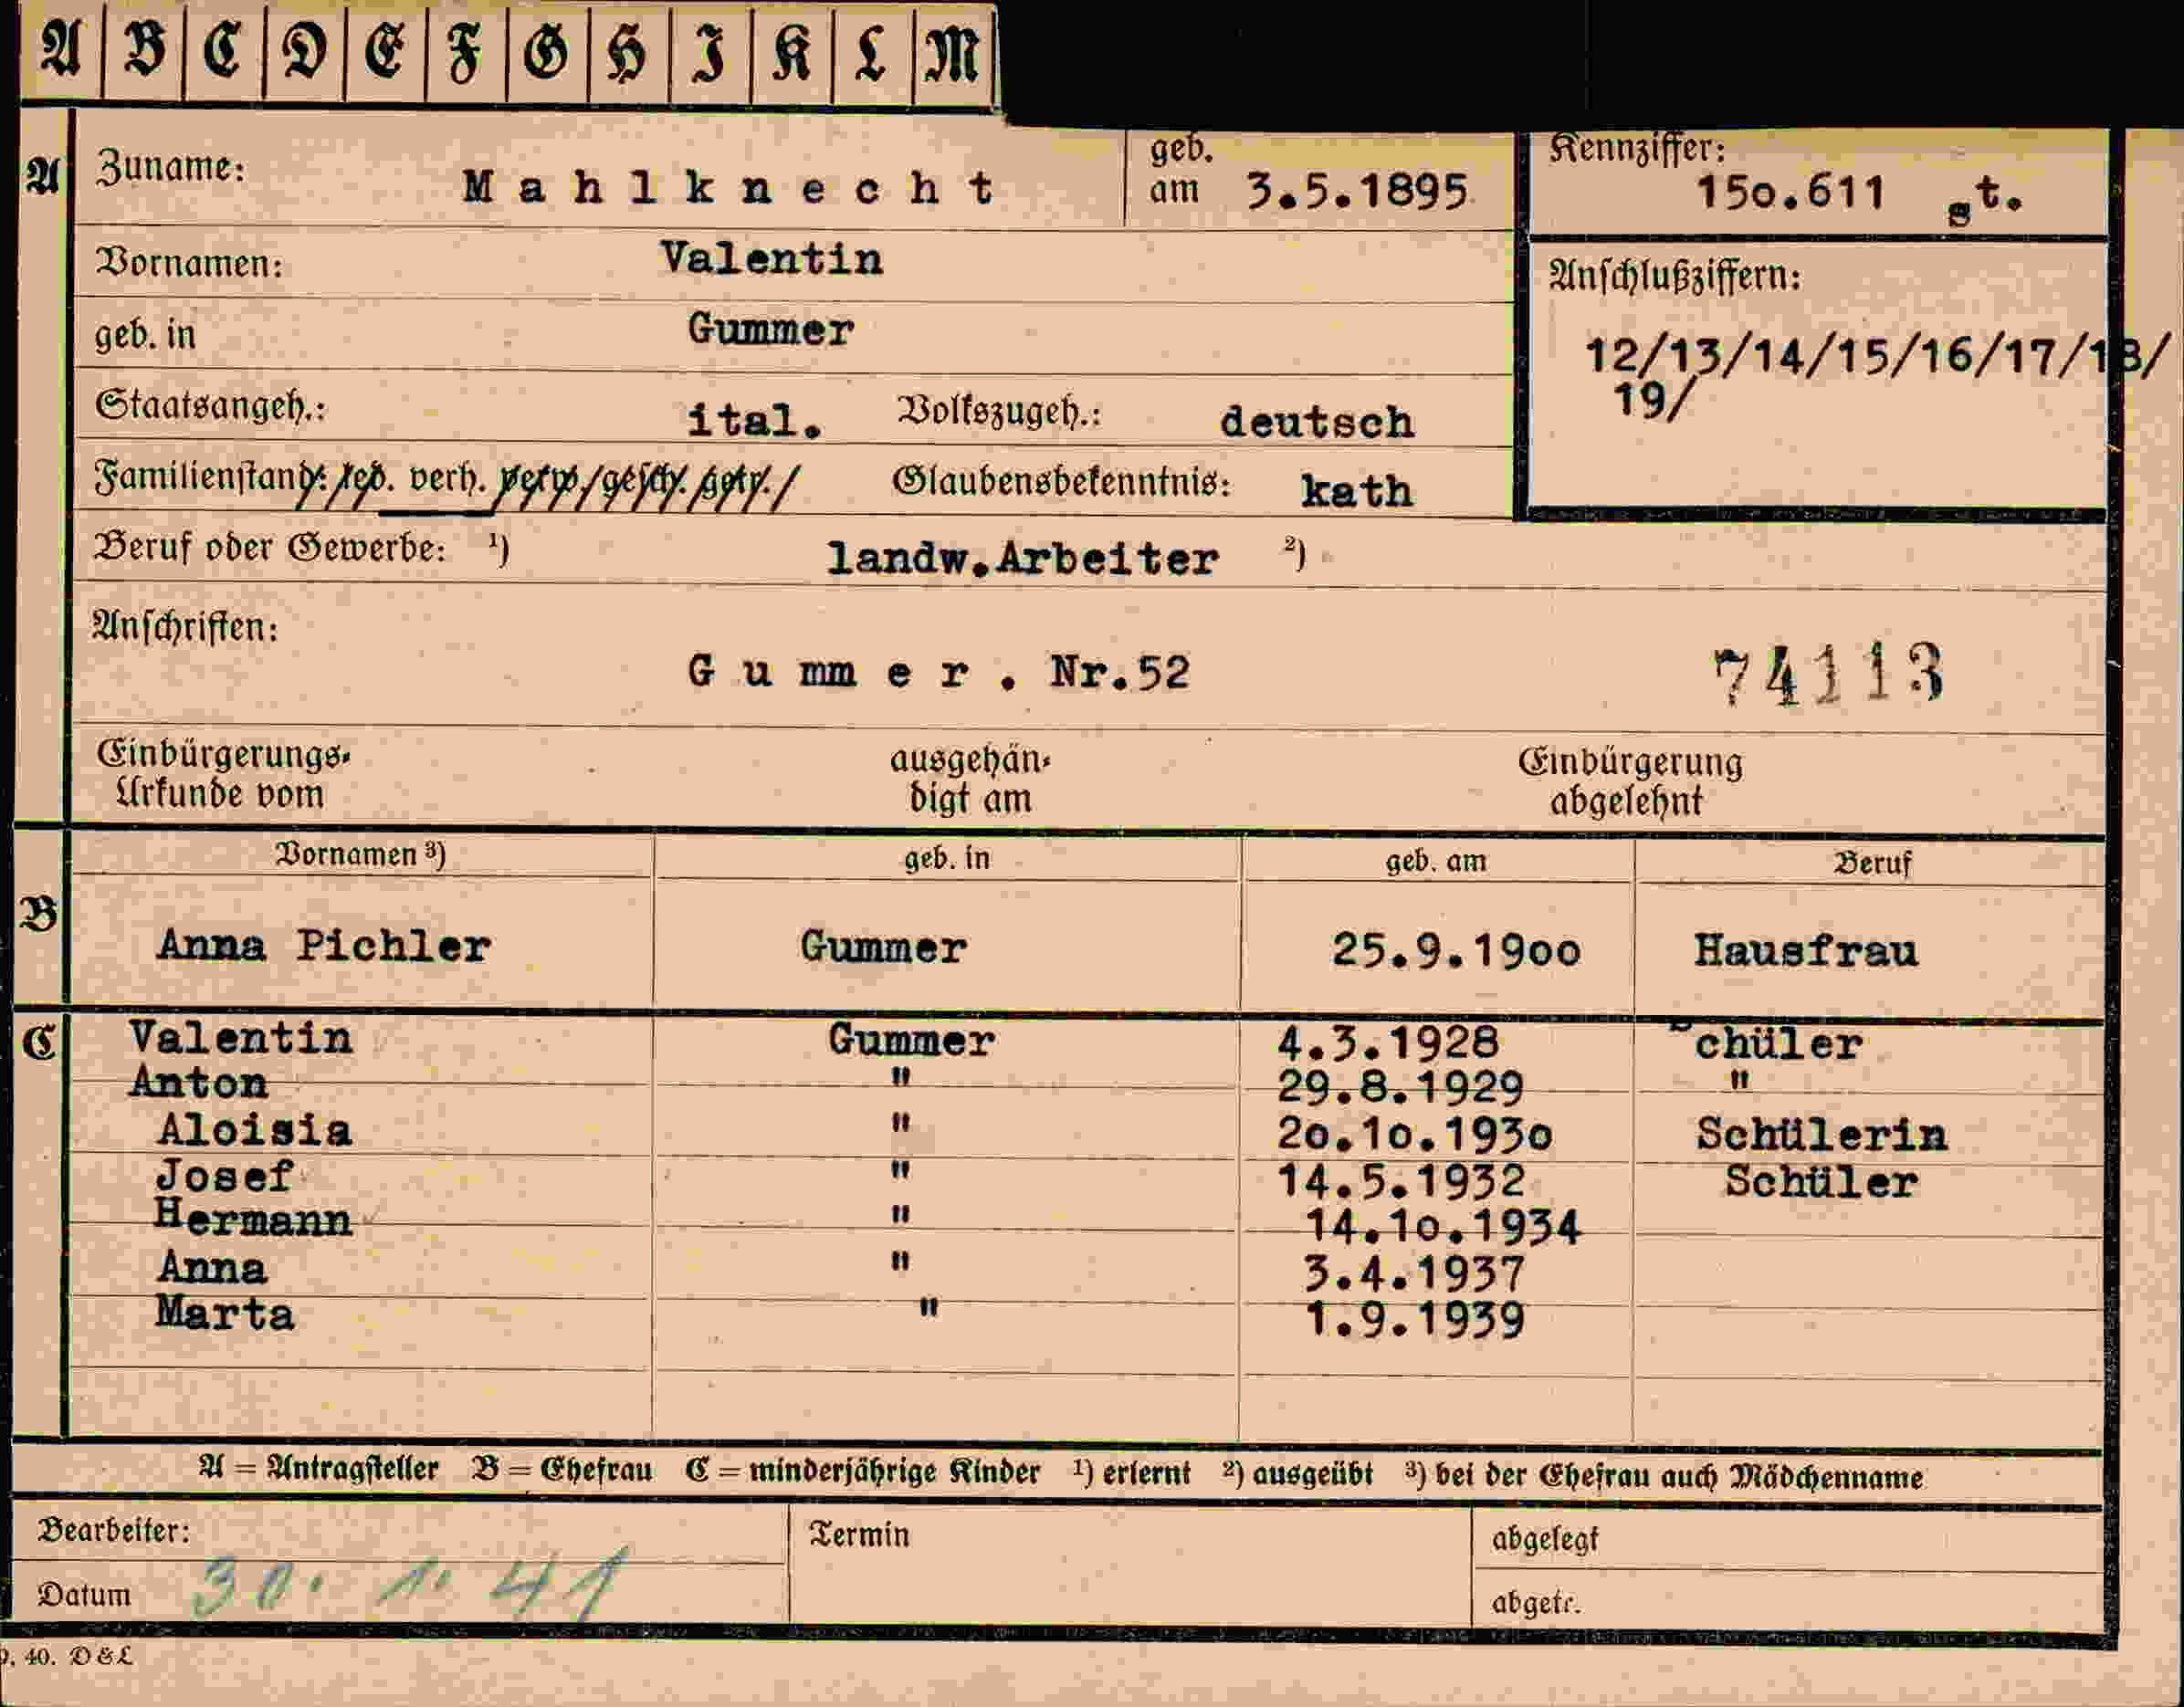 A B C D E F G H I K L M
A Zuname: Mahlknecht geb. am 3.5.1895 Kennziffer: 15o.611 st.
Vornamen: Valentin Anschlußziffern:
geb. in Gummer 12/13/14/15/16/17/18/
19/
Staatsangeh.: ital. Volkszugeh.: deutsch
Familienstand: led. verh. verw. gesch. getr. Glaubensbekenntnis: kath
Beruf oder Gewerbe: ¹) landw.Arbeiter ²)
Anschriften:
Gummer. Nr.52 74113
Einbürgerungs-Urkunde vom ausgehändigt am Einbürgerung abgelehnt
Vornamen ³) geb. in geb. am Beruf
B Anna Pichler Gummer 25.9.19oo Hausfrau
C Valentin Gummer 4.3.1928 Schüler
Anton " 29.8.1929 "
Aloisia " 2o.1o.193o Schülerin
Josef " 14.5.1932 Schüler
Hermann " 14.1o.1934
Anna " 3.4.1937
Marta " 1.9.1939
A = Antragsteller B = Ehefrau C = minderjährige Kinder ¹) erlernt ²) ausgeübt ³) bei der Ehefrau auch Mädchenname
Bearbeiter: Termin abgelegt
Datum 30. 1. 41 abgetr.
40. D&L